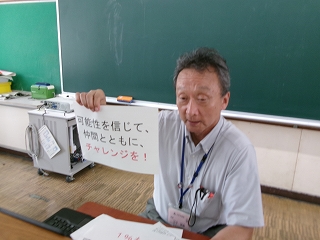 可能性を信じて、
仲間とともに、
チャレンジを！